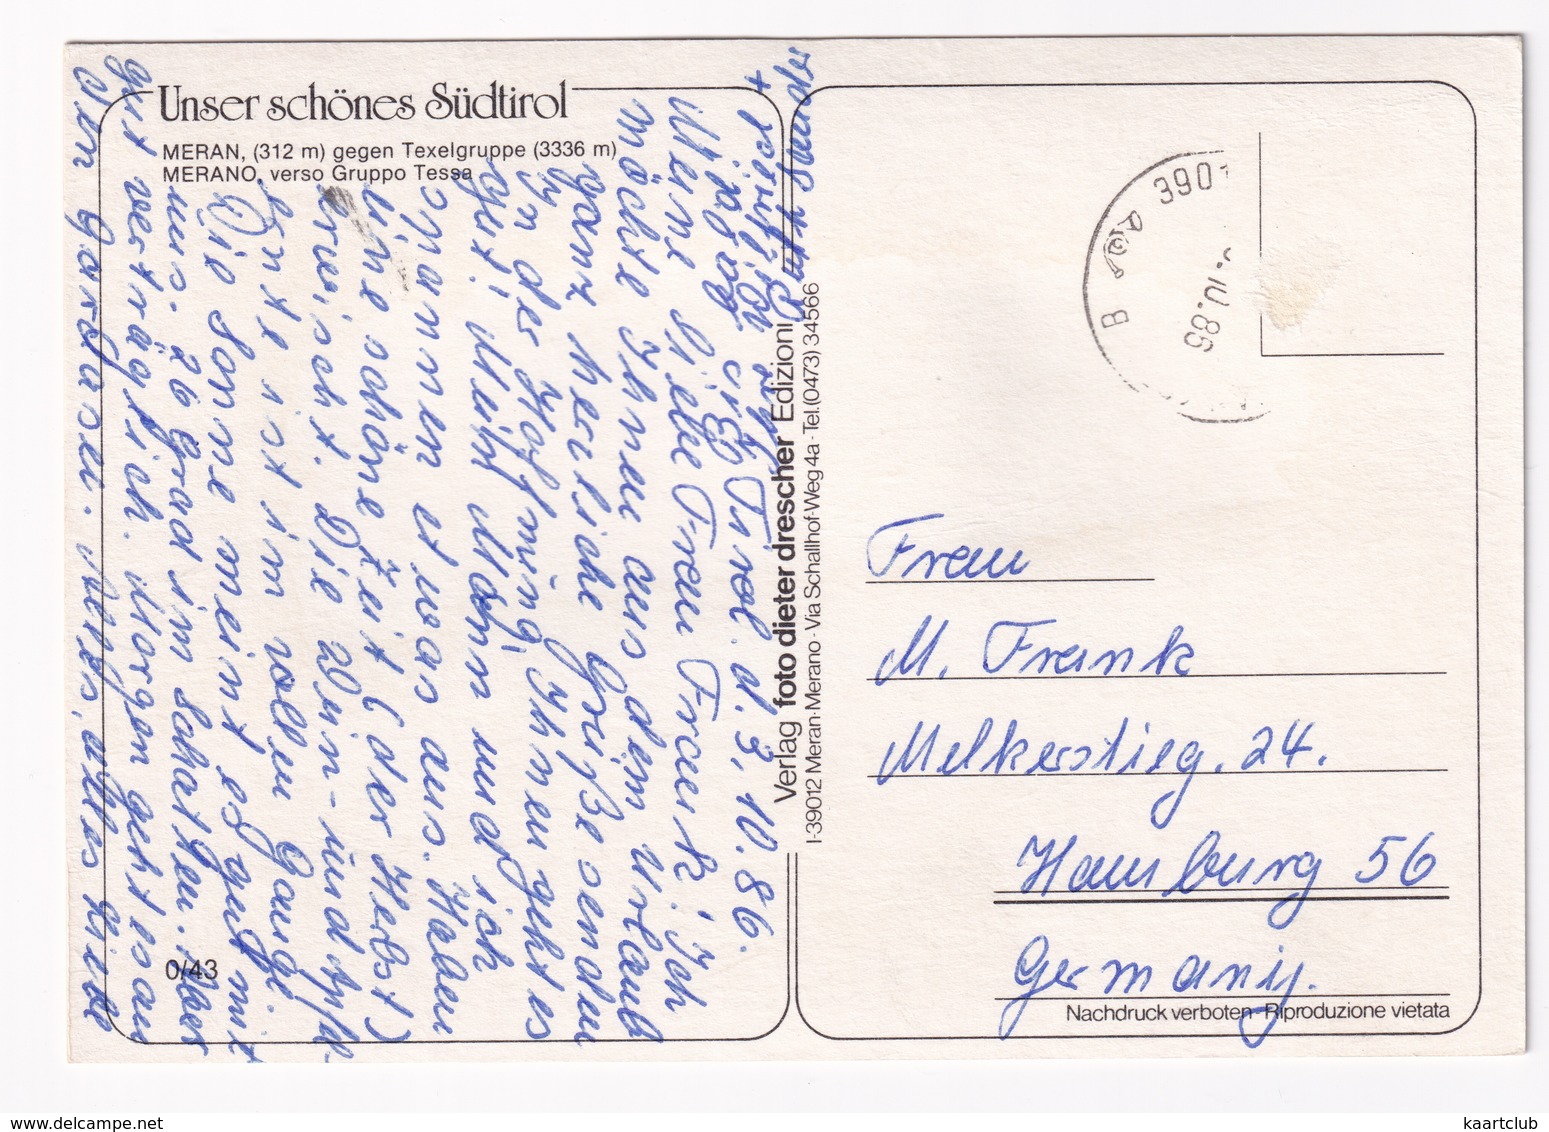 Unser schönes Südtirol
MERAN, (312 m) gegen Texelgruppe (3336 m)
MERANO, verso Gruppo Tessa
Tirol. d. 3. 10. 86.
Meine liebe Frau Frank! Ich
möchte Ihnen aus dem Urlaub
ganz herzliche Grüße senden
In der Hoffnung, Ihnen geht es
gut! Mein Mann und ich
spannen etwas aus. Haben
eine schöne Zeit (der Herbst)
erwischt. Die Wein- und Apfel-
Ernte ist im vollen Gange.
Die Sonne meint es gut mit
uns. 26 Grad im Schatten. Aber
gut verträglich. Morgen geht es an
den Gardasee. Alles, alles Liebe
Verlag foto dieter drescher Edizioni
I-39012 Meran-Merano · Via Schallhof-Weg 4a · Tel. (0473) 34566
0/43
3901
B
.10.86
Frau
M. Frank
Melkerstieg. 24.
Hamburg 56
Germany.
Nachdruck verboten · Riproduzione vietata
kaartclub